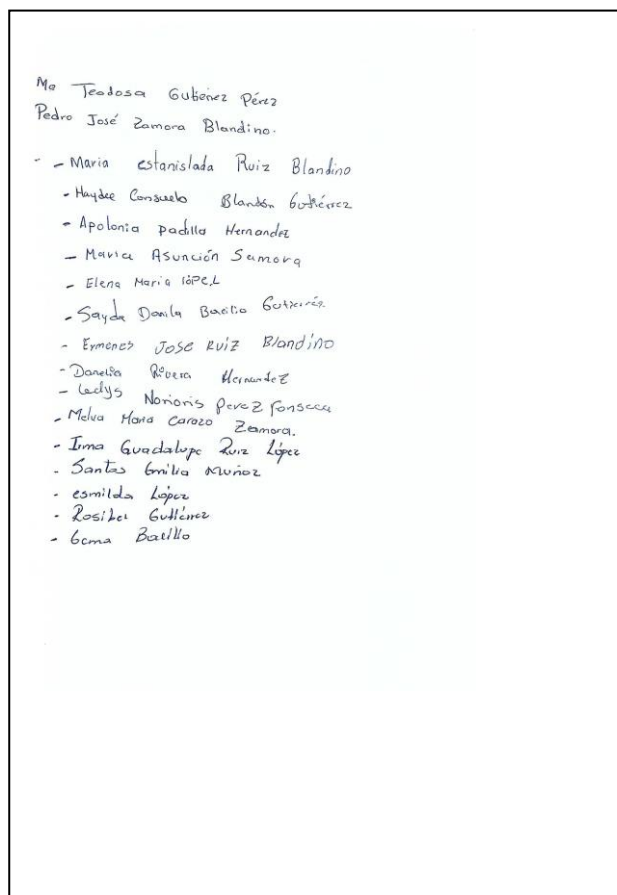 Ma Teodosa Gutiérrez Pérez
Pedro José Zamora Blandino.
- Maria estanislada Ruiz Blandino
- Haydee Consuelo Blandón Gutiérrez
- Apolonia padilla Hernandez
- Maria Asunción Samora
- Elena Maria lópez
- Sayda Danila Gutierrés
- Eymenes JOSE RUIZ Blandino
- Danelia Rivera Hernandez
- Ledys Norioris perez fonseca
- Melva Maria Carazo Zamora.
- Irma Guadalupe Ruiz López
- Santos Emilia Muñoz
- esmilda López
- Rosibel Gutiérrez
- Gema